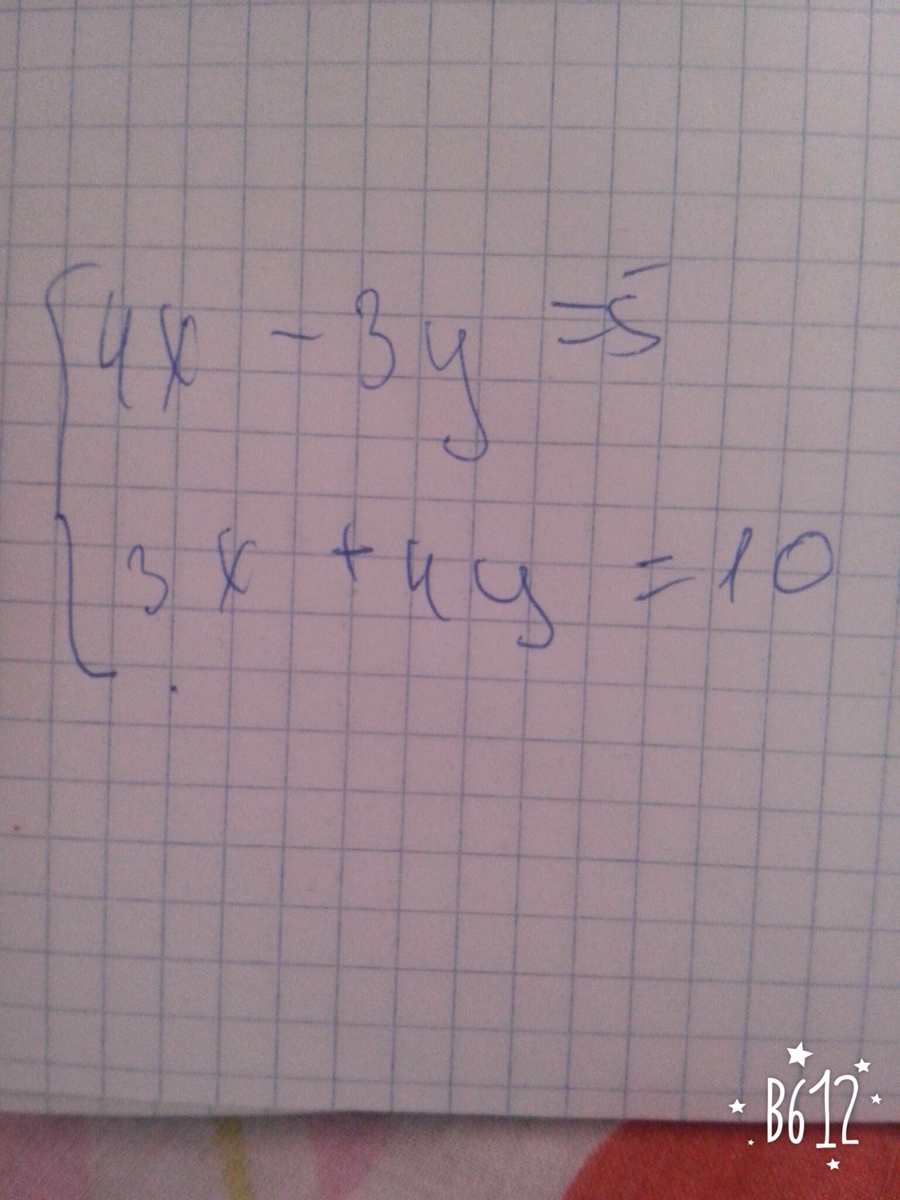 4x - 3y = 5
3x + 4y = 10
B612